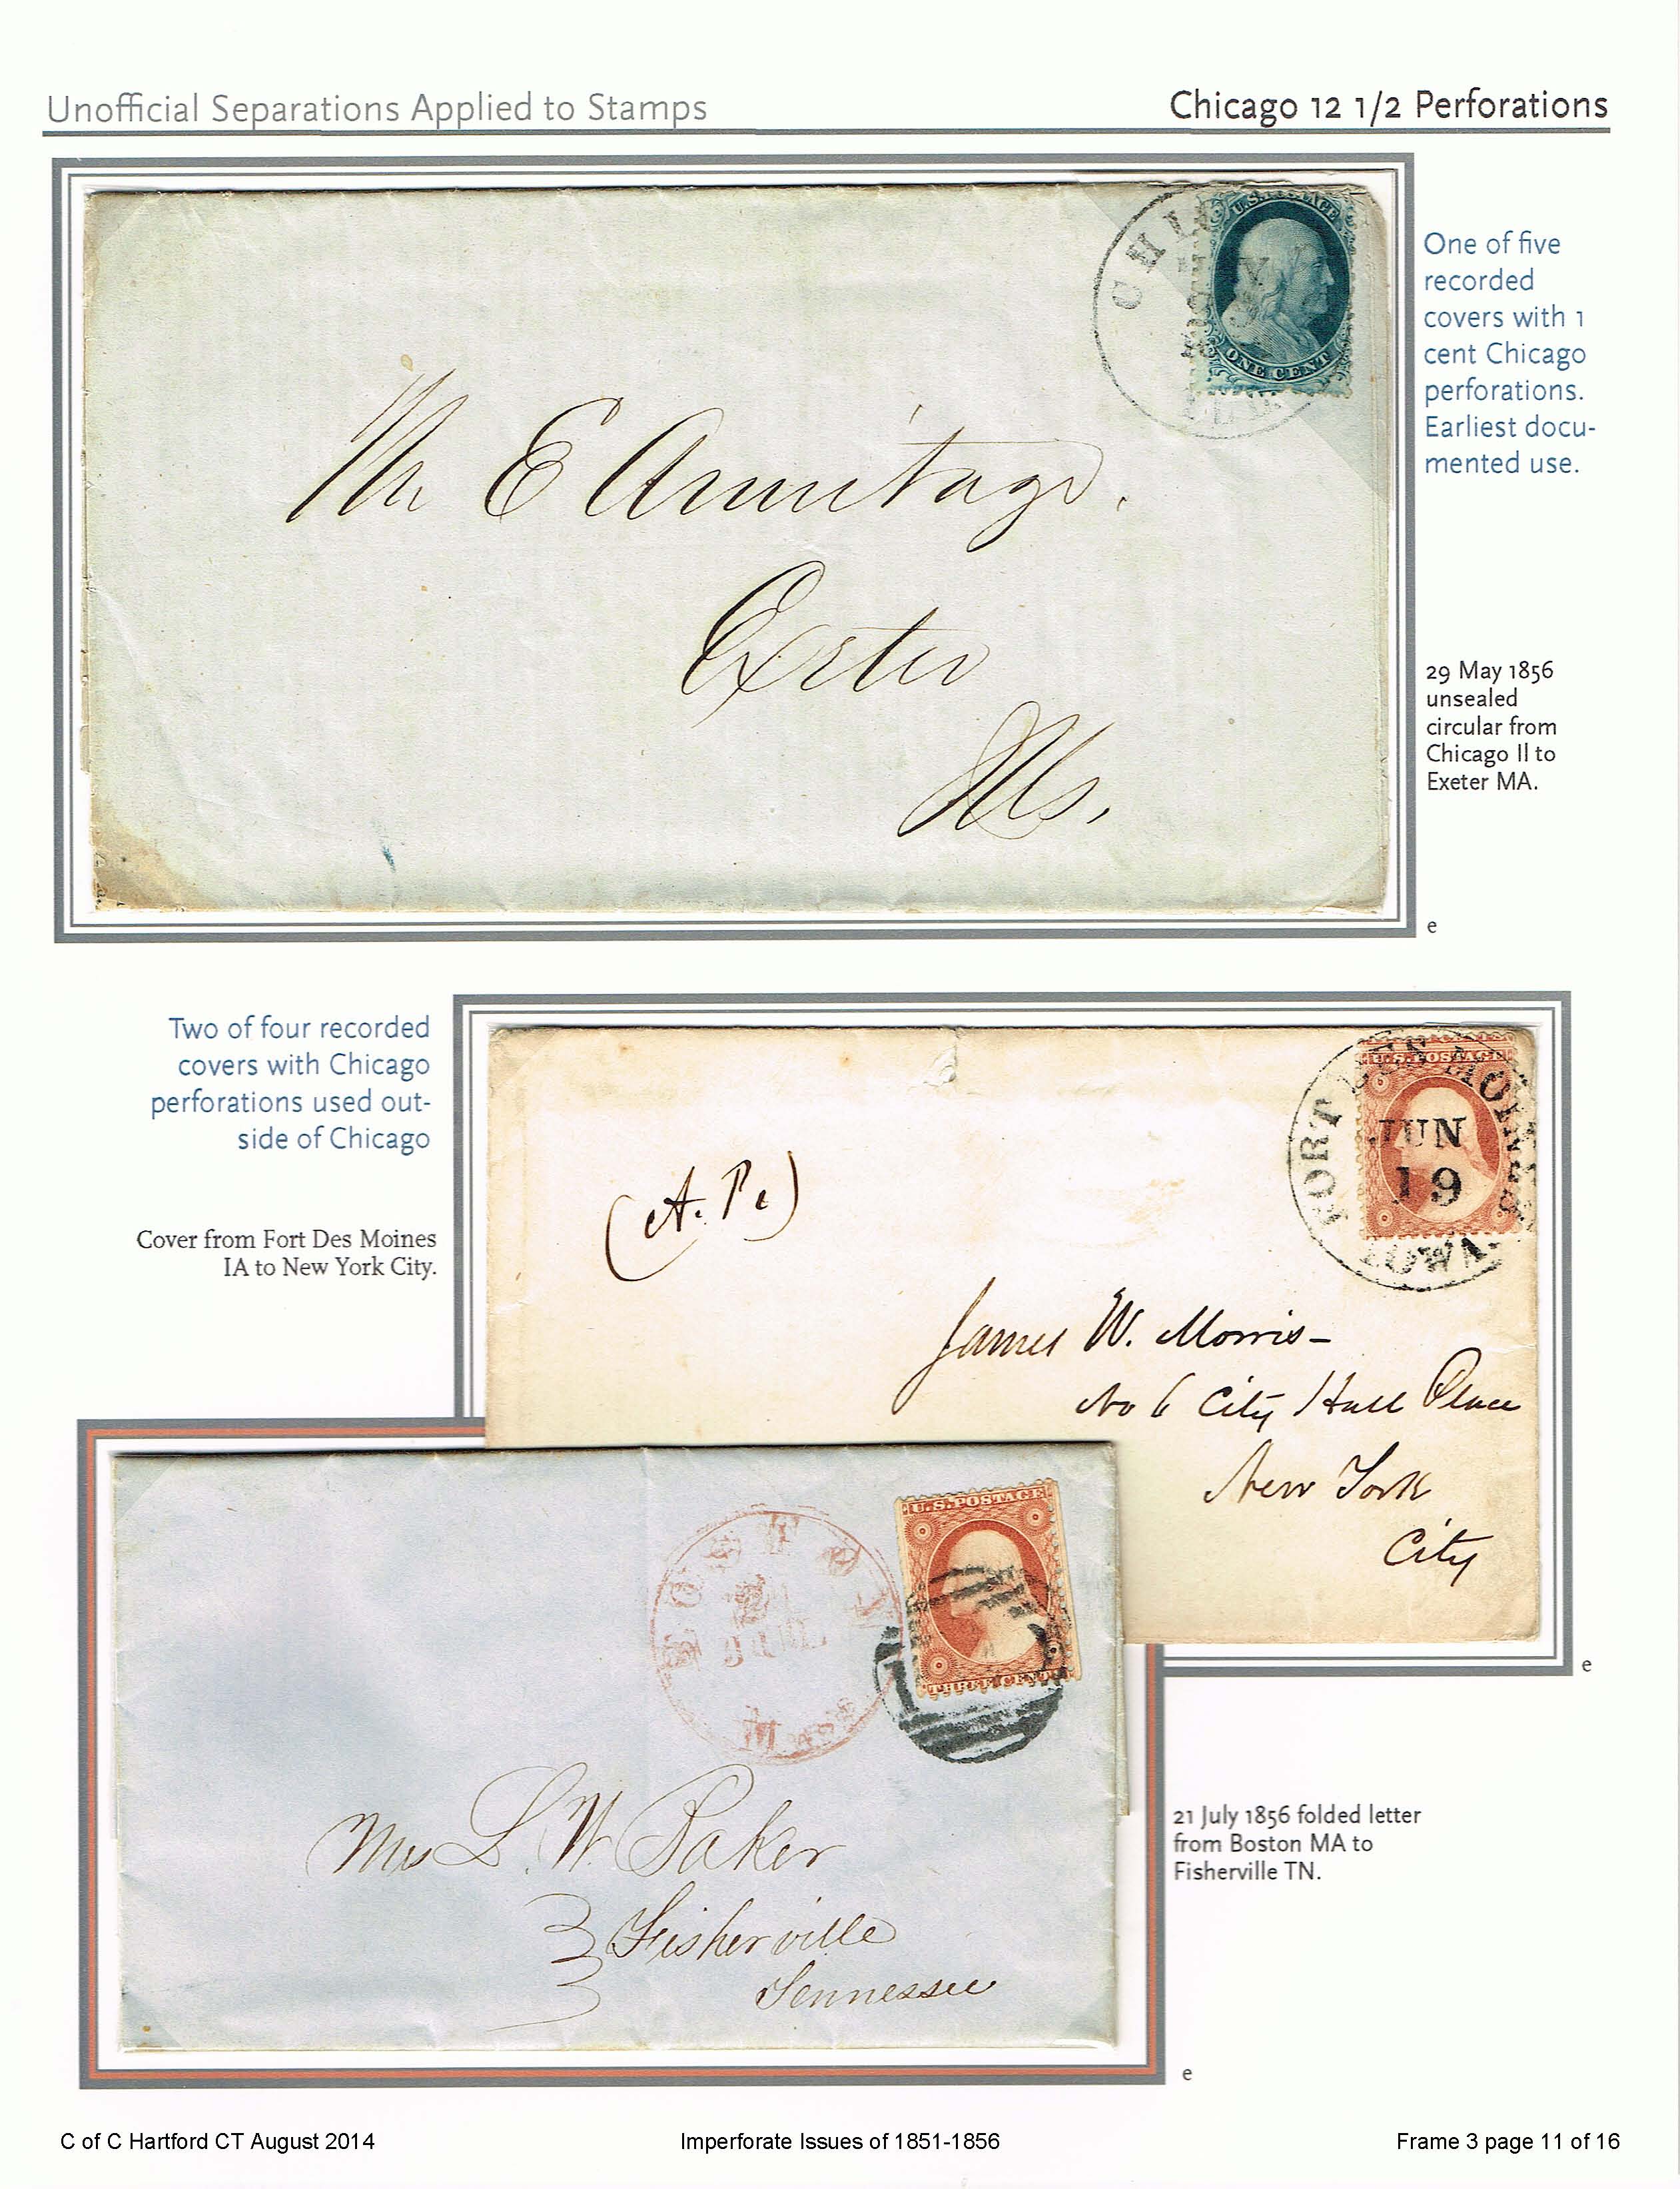 Unofficial Separations Applied to Stamps
Chicago 12 1/2 Perforations
U.S. POSTAGE
ONE CENT
One of five
recorded
covers with 1
cent Chicago
perforations.
Earliest docu-
mented use.
Mr E Armitage.
Exeter
Ills.
29 May 1856
unsealed
circular from
Chicago Il to
Exeter MA.
e
Two of four recorded
covers with Chicago
perforations used out-
side of Chicago
Cover from Fort Des Moines
IA to New York City.
FORT DES MOINES
U.S. POSTAGE
JUN
19
IOWA.
James W. Morris -
No 6 City Hall Place
New York
City
e
U.S. POSTAGE
THREE CENTS
BOSTON
21
JUL
Mass
L. W. Baker
Fisherville
Tennessee
21 July 1856 folded letter
from Boston MA to
Fisherville TN.
e
C of C Hartford CT August 2014
Imperforate Issues of 1851-1856
Frame 3 page 11 of 16